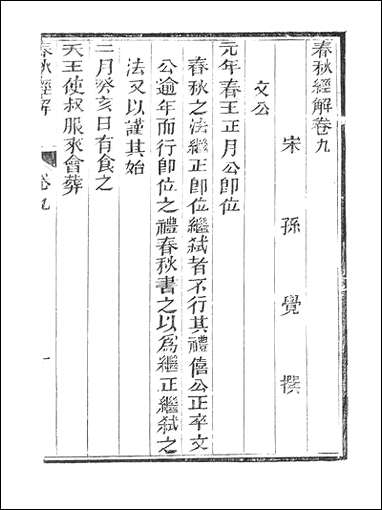 春秋經解卷九
宋 孫 覺 撰
文公
元年春王正月公即位
春秋之法繼正即位繼弑者不行其禮僖公正卒文
公逾年而行即位之禮春秋書之以爲繼正繼弑之
法又以謹其始
二月癸亥日有食之
天王使叔服來會葬
春秋經解
卷九
一